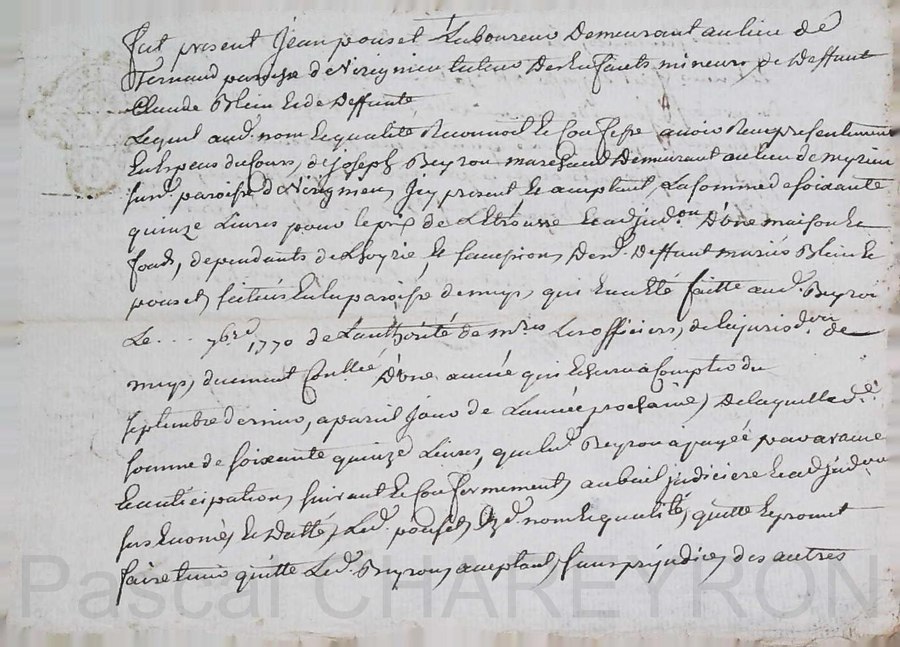 fut present Jean pouset Laboureur Demeurant au lieu de
fernaud paroisse de tuteur Des Enfants mineurs de Deffunt
Claude Blein Et de Deffunte
Lequel aud. nom Et qualité Reconnoit Et Confesse avoir Reçu présentement
En Especes de Cours, de Joseph Beyron marchand Demeurant au lieu de
susd. paroisse de Icy present Et aceptant, La somme de soixante
quinze Livres pour le prix de Létrousse Et adjud.on D'une maison Et
fonds, dependants de Lhoyrie, Et Des d. Deffunt mariés Blein Et
pouset, scitués En La paroisse de mys, qui En a Eté faitte aud. Beyron
Le ... 7bre 1770 de L'authorité de mrs Les officiers, de la jurisd.on de
mys, duement Conllée D'une année qui Echerra à Compter du
septembre dernier, a pareil jour de L'année prochaine, De laquelle d.e
somme de soixante quinze Livres, que led. Beyron a payée par avance
Et anticipation, suivant Et Conformement, au bail judiciere Et adjud.on
sus Enoncé, Et Datté, Led. pouset, Esd. nom Et qualité, quitte Et promet
faire tenir quitte Led. Beyron, aceptant, sans préjudice, des autres
Pascal CHAREYRON